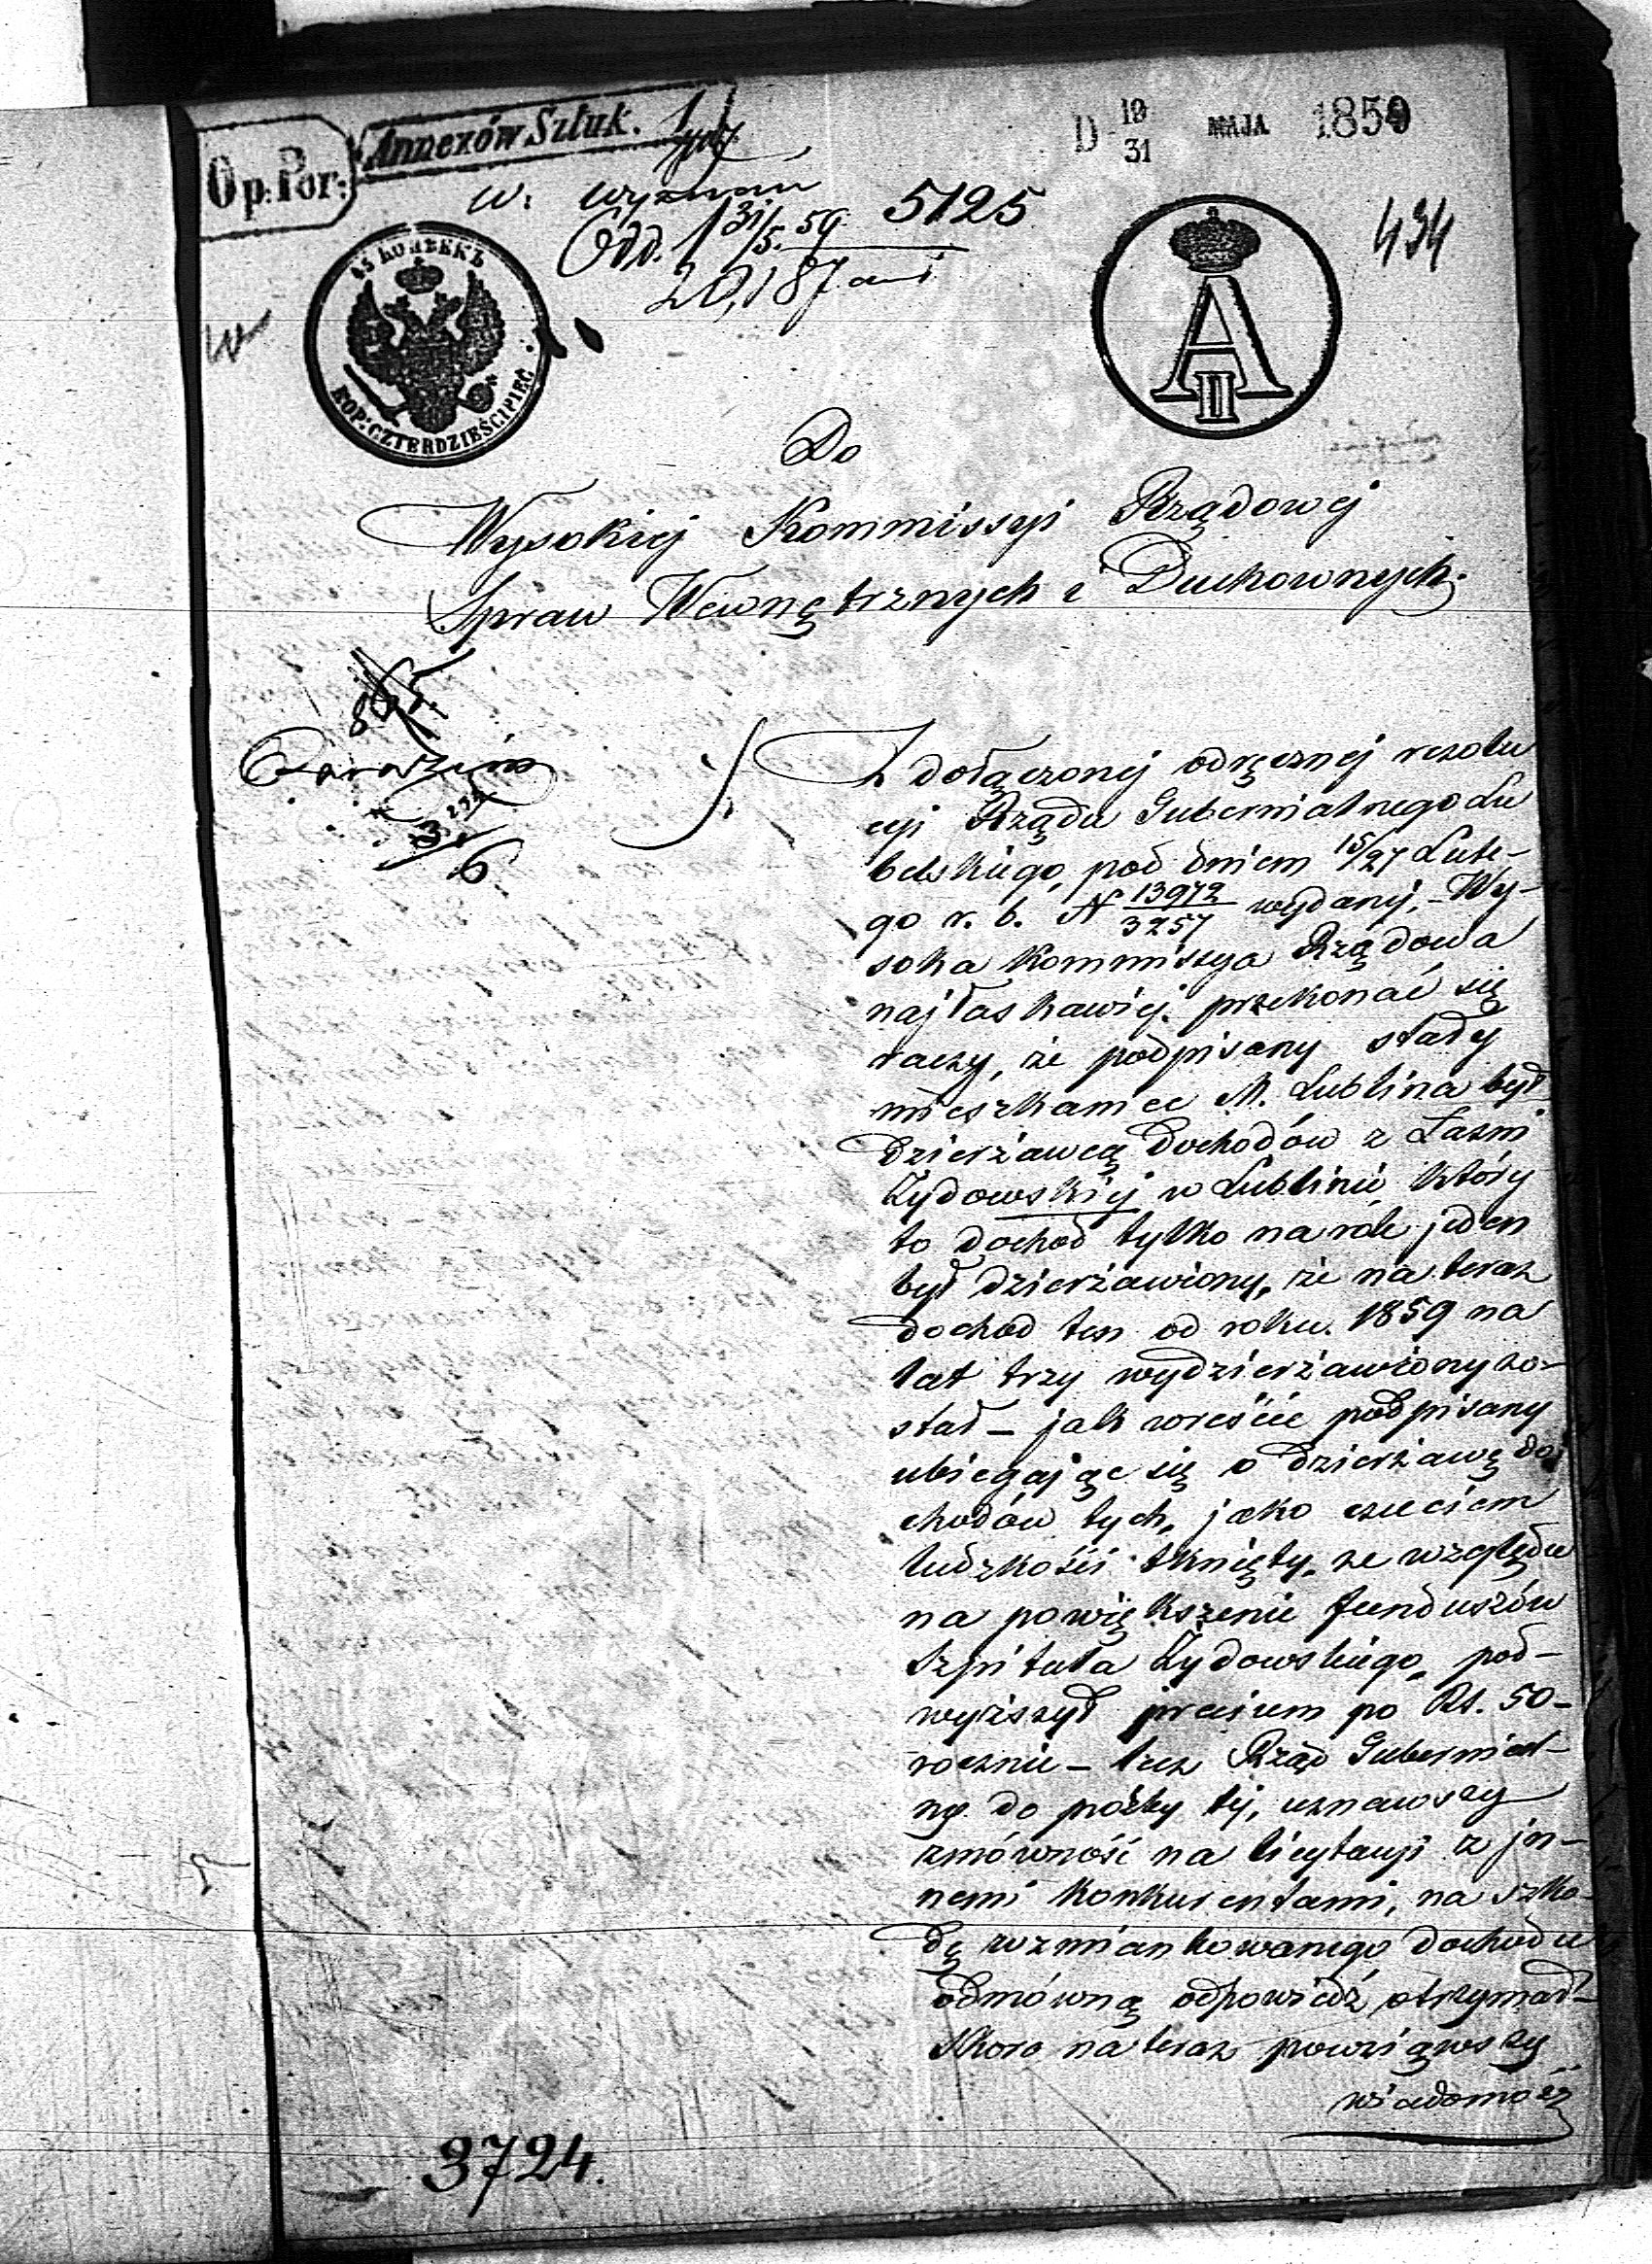 D 19/31 MAJA 1859
Annexów Sztuk. 1
Op: Por:
w. wyznań
Odd. 1 31/5. 59. 5125
20,187
434
45 КОПѢЕКЪ
KOP: CZTERDZIEŚCI PIĘĆ
A II
Do
Wysokiej Kommissyi Rządowej
Spraw Wewnętrznych i Duchownych.
Z dołączonej odręcznej rezolu
cyi Rządu Gubernialnego Lu
belskiego, pod dniem 15/27 Lute-
go r. b. N 13972/3257 wydanej, - Wy-
soka Kommissya Rządowa
najłaskawiej przekonać się
raczy, że podpisany stały
mieszkaniec M. Lublina był
Dzierżawcą dochodów z Łaźni
Żydowskiej w Lublinie, który
to dochod tylko na rok jeden
był dzierżawiony, że na teraz
dochod ten od roku 1859 na
lat trzy wydzierżawiony zo-
stał - jak wreście podpisany
ubiegając się o dzierżawę do
chodów tych, jako czuciem
ludzkości tknięty, ze względu
na powiększenie funduszów
Szpitala Żydowskiego, pod-
wyższył precium po Rs. 50-
rocznie - lecz Rząd Gubernial-
ny do prośby tej, uznawszy
zmówność na licytacyi z jn-
nemi konkurentami, na szko-
dę wzmiankowanego dochodu
odmówną odpowiedź otrzymał -
Skoro na teraz powziąwszy
wiadomość
3724.